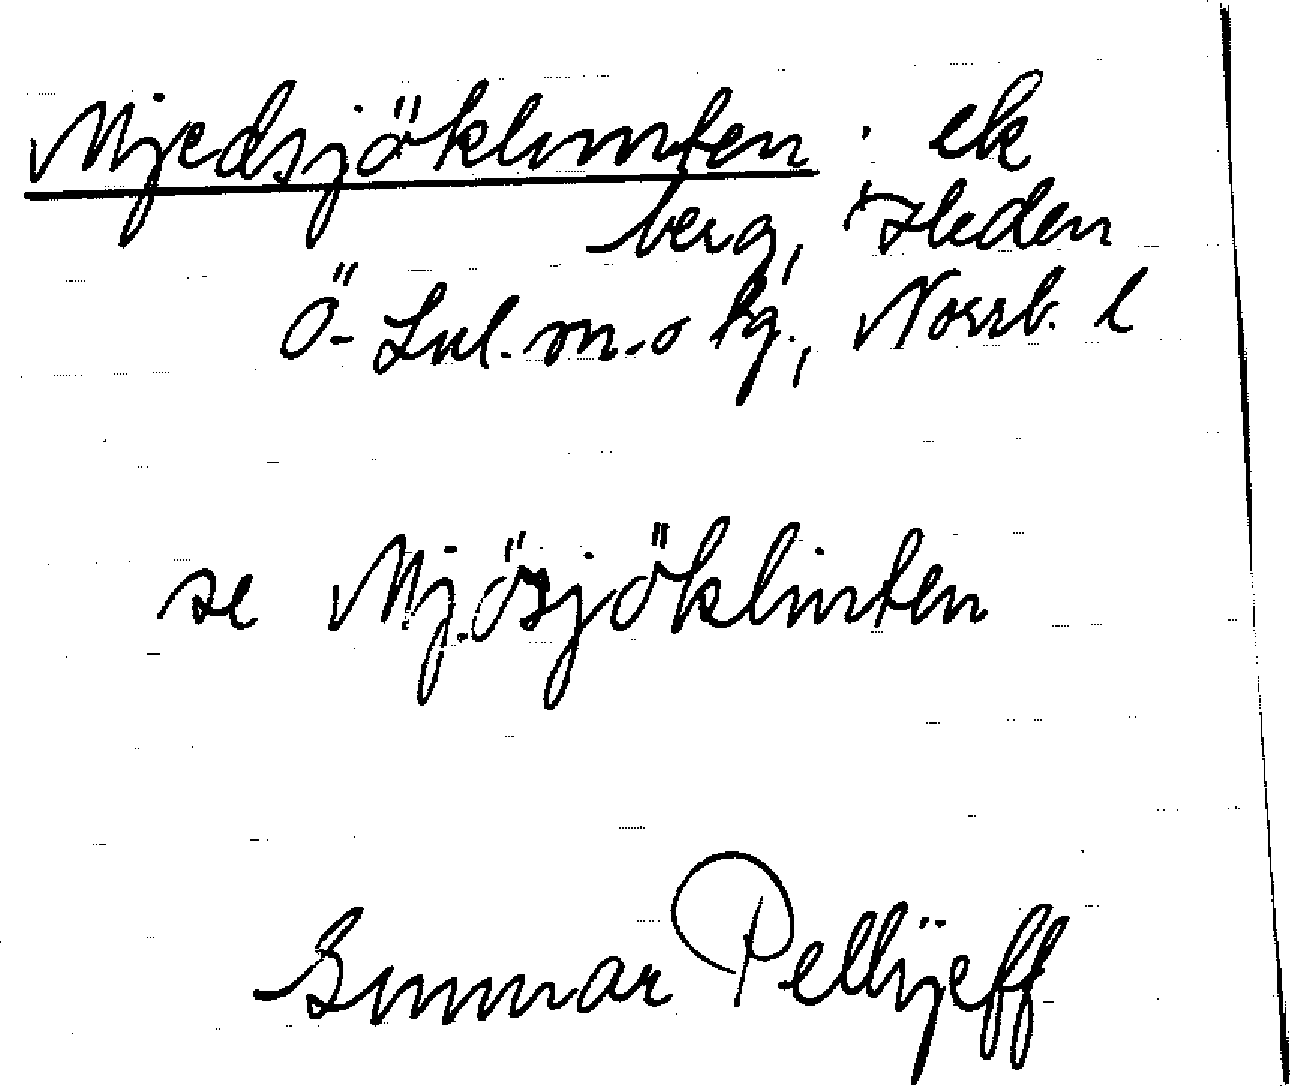 Mjedsjöklinten: ek
berg, Heden
Ö-Lul. m. o kg., Norrb. l
se Mjösjöklinten
Gunnar Pellijeff